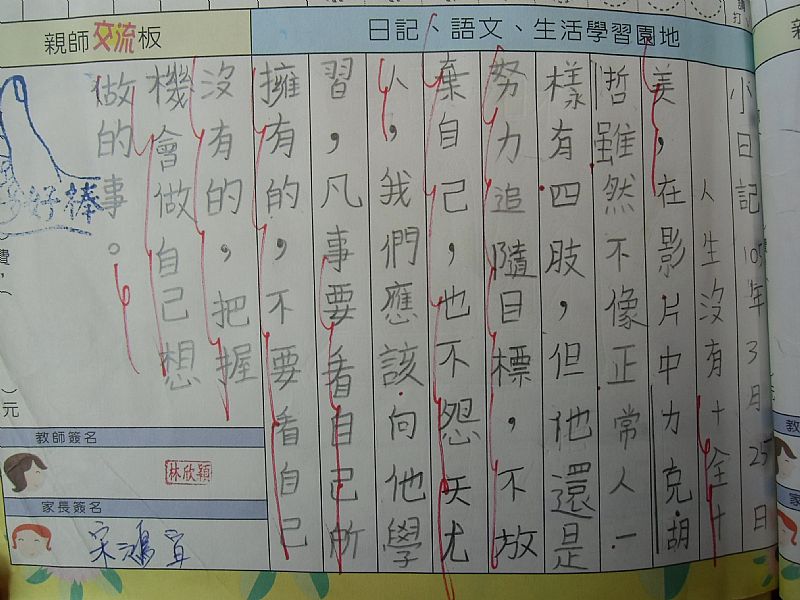 親師交流板
日記、語文、生活學習園地
小日記 105年3月25日
人生沒有十全十
美，在影片中力克．胡
哲雖然不像正常人一
樣有四肢，但他還是
努力追隨目標，不放
棄自己，也不怨天尤
人，我們應該向他學
習，凡事要看自己所
擁有的，不要看自己
沒有的，把握
機會做自己想
做的事。
好棒
費
元
教師簽名
林欣穎
家長簽名